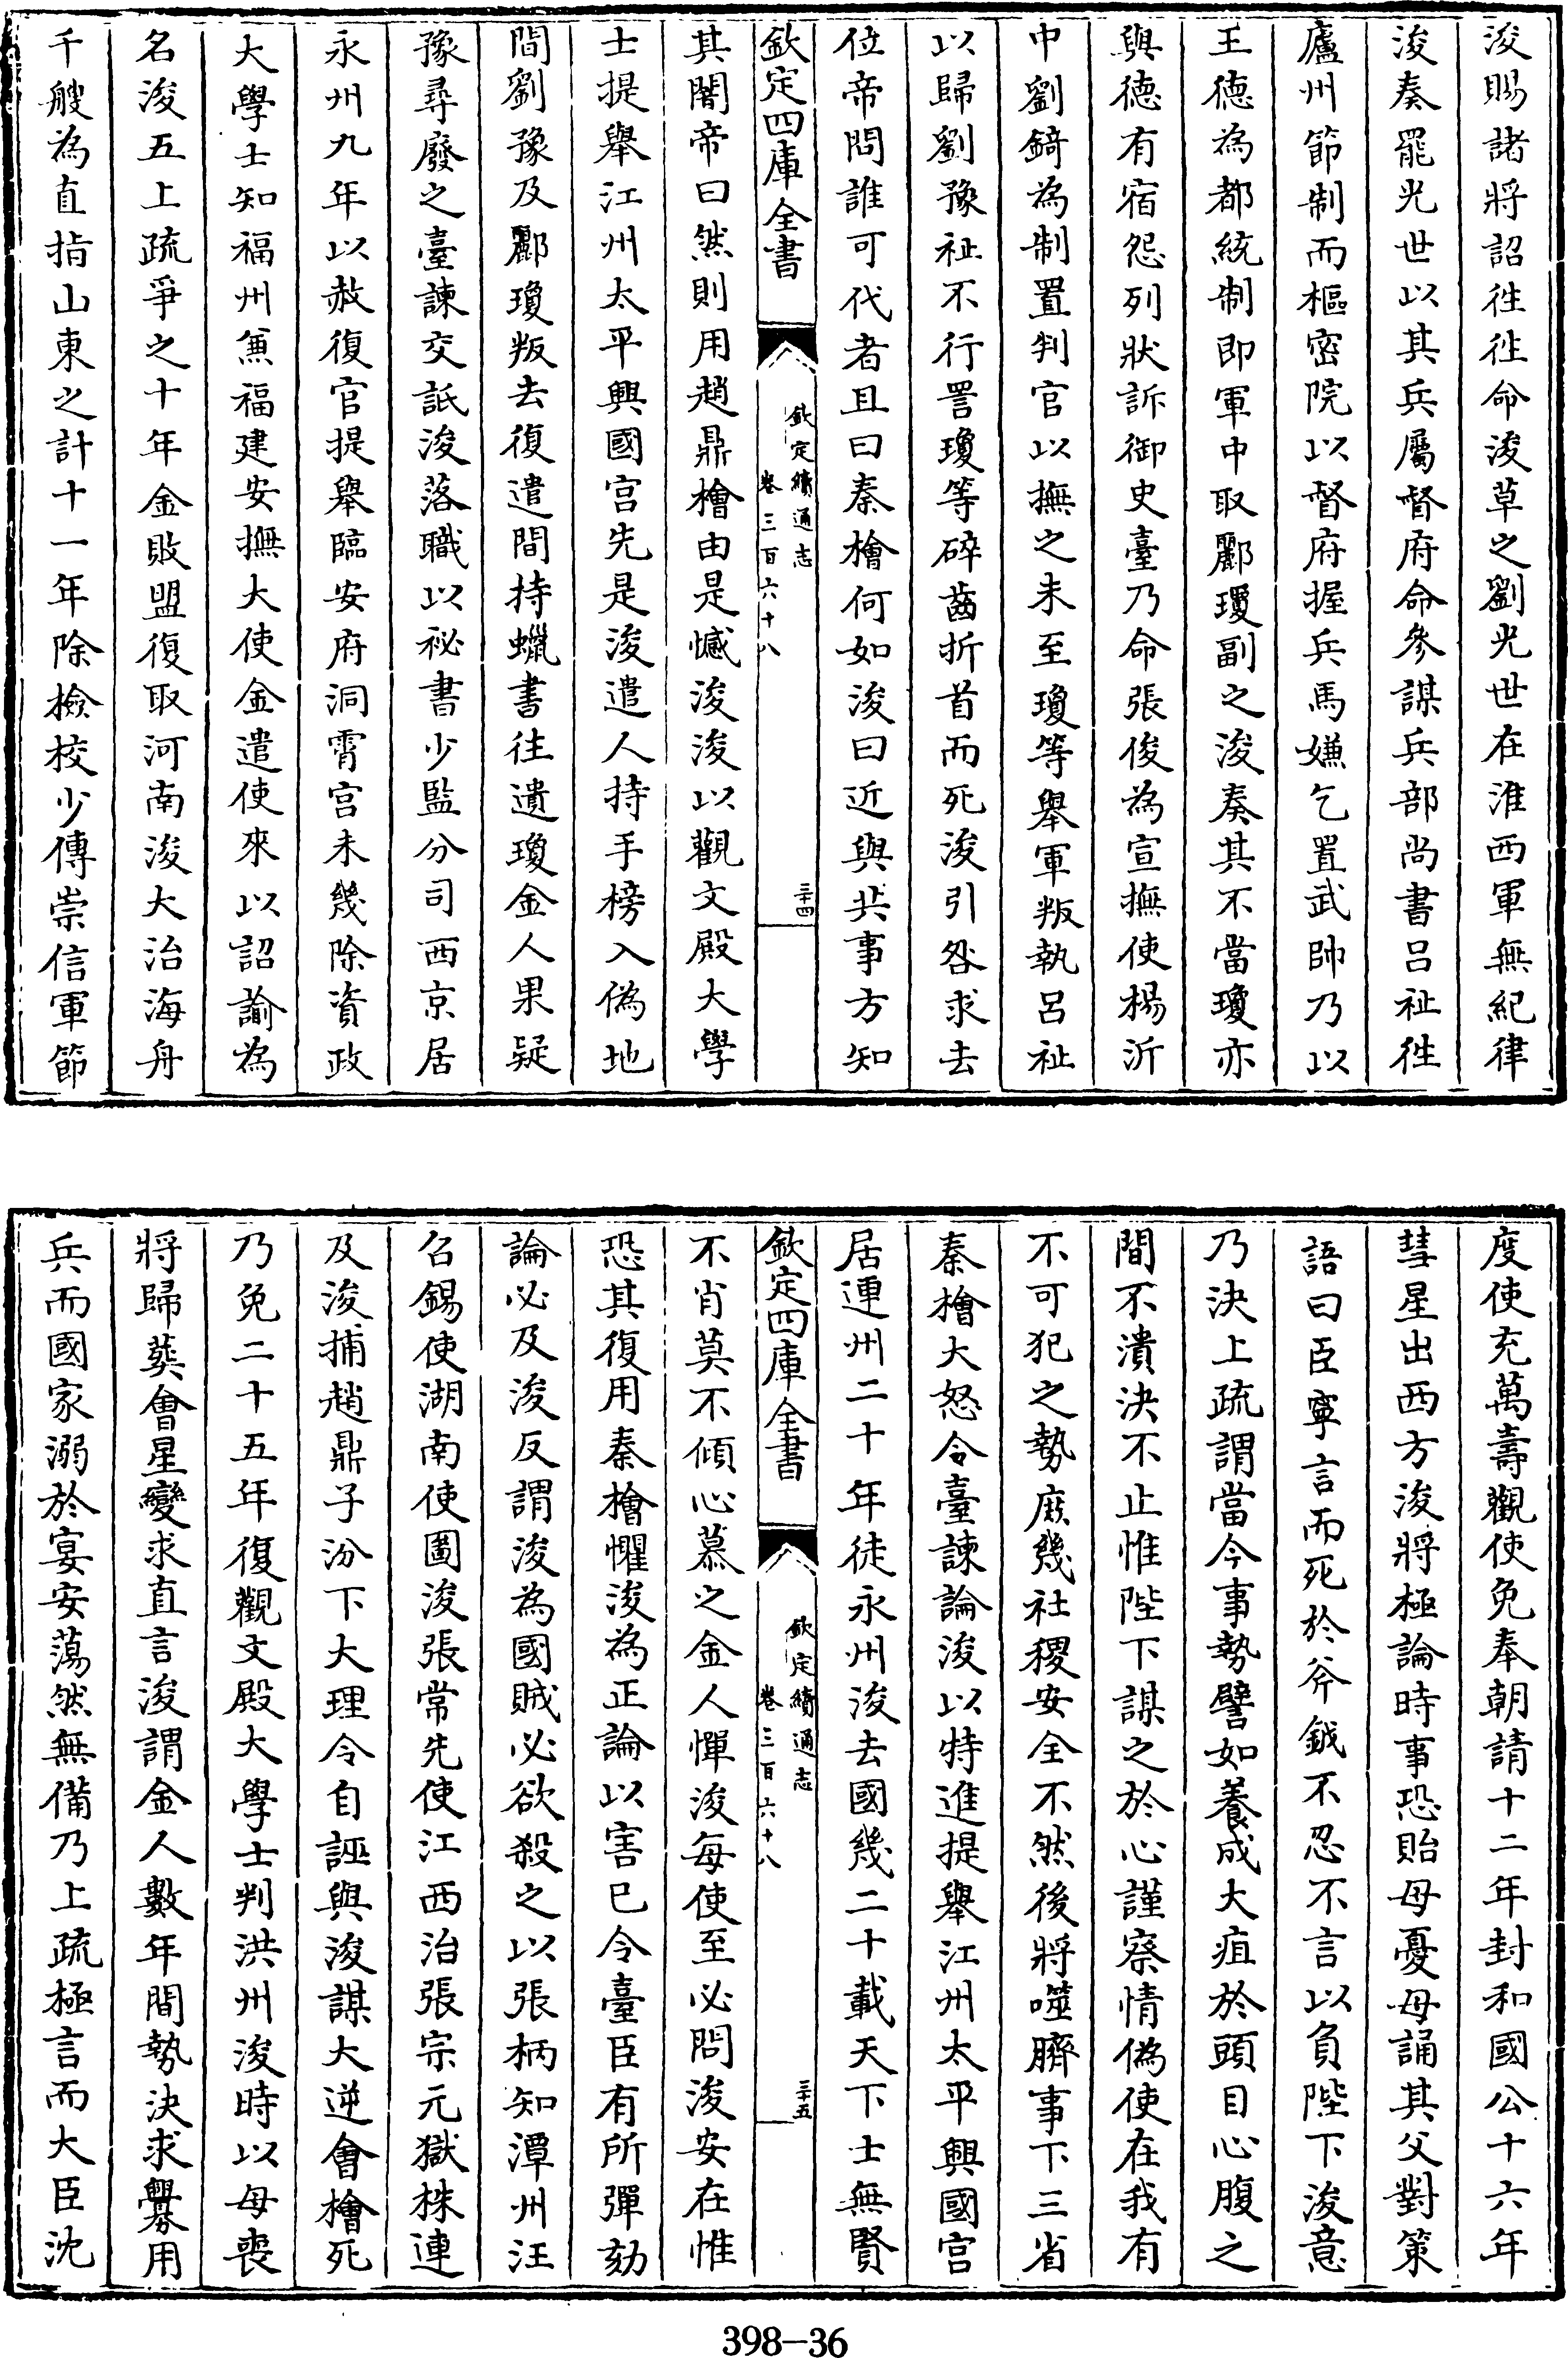 浚賜諸將詔徃徃命浚草之劉光世在淮西軍無紀律
浚奏罷光世以其兵屬督府命參謀兵部尚書呂祉徃
廬州節制而樞密院以督府握兵馬嫌乞置武帥乃以
王德為都統制即軍中取酈瓊副之浚奏其不當瓊亦
與德有宿怨列狀訴御史臺乃命張俊為宣撫使楊沂
中劉錡為制置判官以撫之未至瓊等舉軍叛執呂祉
以歸劉豫祉不行詈瓊等碎齒折首而死浚引咎求去
位帝問誰可代者且曰秦檜何如浚曰近與共事方知
欽定四庫全書
欽定續通志
卷三百六十八
三十四
其闇帝曰然則用趙鼎檜由是憾浚浚以觀文殿大學
士提舉江州太平興國宮先是浚遣人持手榜入偽地
間劉豫及酈瓊叛去復遣間持蠟書往遺瓊金人果疑
豫尋廢之臺諫交詆浚落職以祕書少監分司西京居
永州九年以赦復官提舉臨安府洞霄宮未幾除資政
大學士知福州兼福建安撫大使金遣使來以詔諭為
名浚五上疏爭之十年金敗盟復取河南浚大治海舟
千艘為直指山東之計十一年除檢校少傅崇信軍節
度使充萬壽觀使免奉朝請十二年封和國公十六年
彗星出西方浚將極論時事恐貽母憂母誦其父對策
語曰臣寧言而死於斧鉞不忍不言以負陛下浚意
乃決上疏謂當今事勢譬如養成大疽於頭目心腹之
間不潰決不止惟陛下謀之於心謹察情偽使在我有
不可犯之勢庶幾社稷安全不然後將噬臍事下三省
秦檜大怒令臺諫論浚以特進提舉江州太平興國宮
居連州二十年徒永州浚去國幾二十載天下士無賢
欽定四庫全書
欽定續通志
卷三百六十八
三十五
不肖莫不傾心慕之金人憚浚每使至必問浚安在惟
恐其復用秦檜懼浚為正論以害已令臺臣有所彈劾
論必及浚反謂浚為國賊必欲殺之以張柄知潭州汪
召錫使湖南使圖浚張常先使江西治張宗元獄株連
及浚捕趙鼎子汾下大理令自誣與浚謀大逆會檜死
乃免二十五年復觀文殿大學士判洪州浚時以母喪
將歸葬會星變求直言浚謂金人數年間勢決求釁用
兵而國家溺於宴安蕩然無備乃上疏極言而大臣沈
398-36